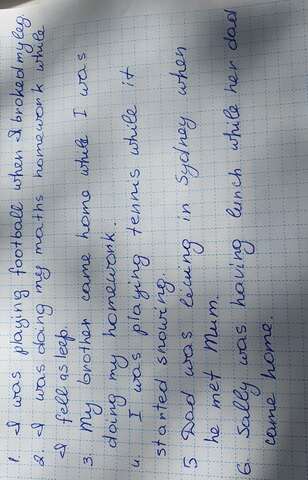 1. I was playing football when I broked my leg
2. I was doing my maths homework while
I fell asleep.
3. My brother came home while I was
doing my homework.
4. I was playing tennis while it
started snowing.
5 Dad was living in Sydney when
he met Mum.
6. Sally was having lunch while her dad
came home.